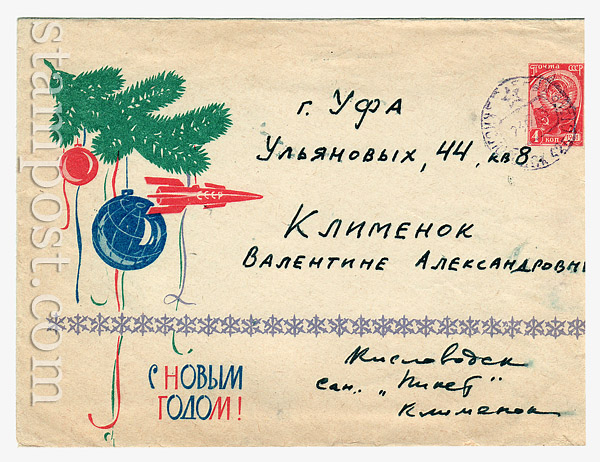 г. Уфа
Ульяновых, 44, кв 8
Клименок
Валентине Александровн
Кисловодск
сан. „Пикет"
Клименок
С НОВЫМ
ГОДОМ!
СССР
ПОЧТА СССР
4 КОП
stampost.com
stampost.com